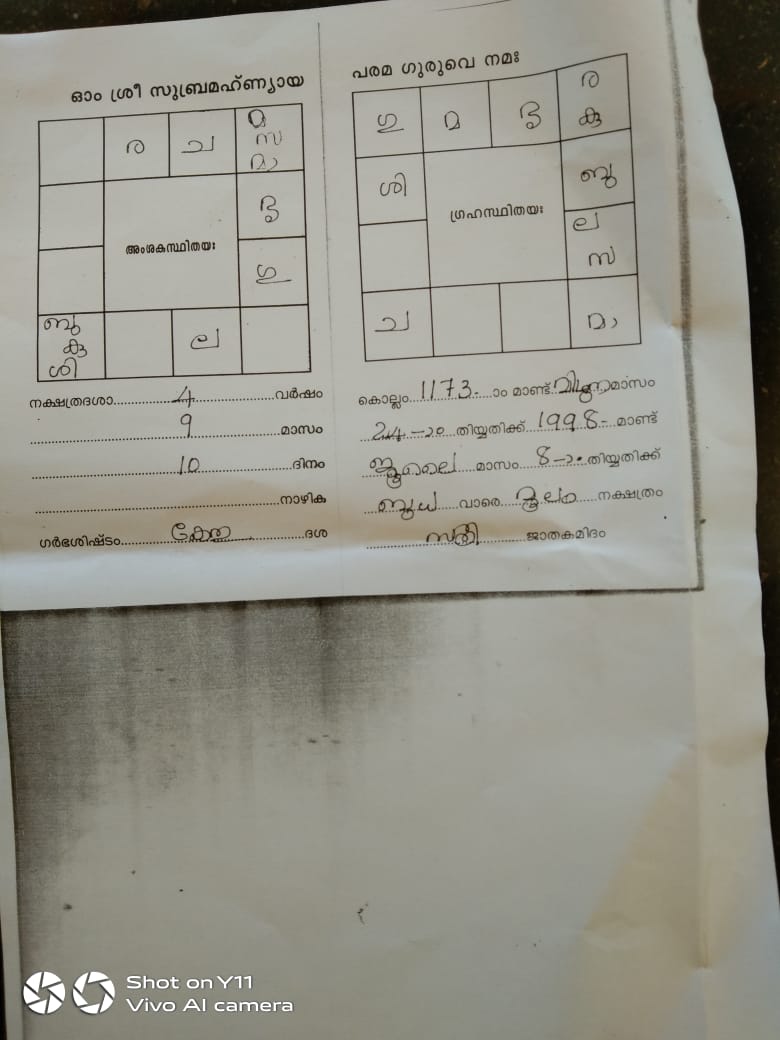 ഓം ശ്രീ സുബ്രമഹ്ണ്യായ
ര ച മ
സ
മാ
ഭൃ
അംശകസ്ഥിതയഃ
ഗു
ബു
കു
ശി
ല
നക്ഷത്രദശാ 4 വർഷം
9 മാസം
10 ദിനം
നാഴിക
ഗർഭശിഷ്ടം കേതു ദശ
പരമ ഗുരുവെ നമഃ
ഗു മ ഭൃ ര
കു
ശി ബു
ഗ്രഹസ്ഥിതയഃ
ല
സ
ച മാ
കൊല്ലം 1173 ാം മാണ്ട് മിഥുനമാസം
24-ാം തിയ്യതിക്ക് 1998 മാണ്ട്
ജൂലൈ മാസം 8-ാം തിയ്യതിക്ക്
ബുധ വാരെ മൂലം നക്ഷത്രം
സ്ത്രീ ജാതകമിദം
Shot on Y11
Vivo AI camera